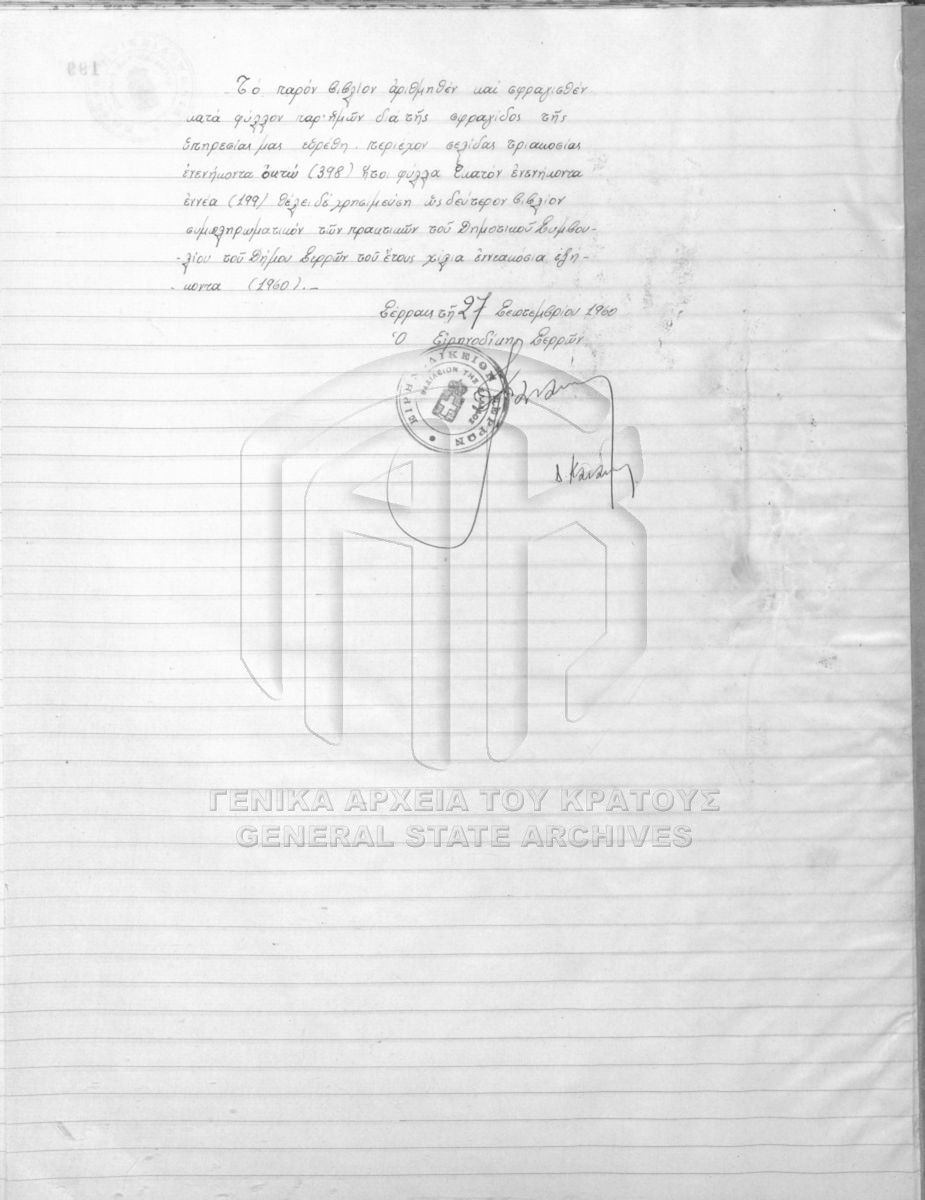 199
Τό παρόν βιβλίον ἀριθμηθέν καί σφραγισθέν
κατά φύλλον παρ' ἡμῶν διά τῆς σφραγῖδος τῆς
Ὑπηρεσίας μας εὑρέθη περιέχον σελίδας τριακοσίας
ἐνενήκοντα ὀκτώ (398) ἤτοι φύλλα ἑκατόν ἐνενήκοντα
ἐννέα (199) θέλει δέ χρησιμεύση ὡς δεύτερον βιβλίον
συμπληρωματικόν τῶν πρακτικῶν τοῦ Δημοτικοῦ Συμβου-
-λίου τοῦ Δήμου Σερρῶν τοῦ ἔτους χίλια ἐννεακόσια ἑξή-
κοντα (1960).-
Σέρραι τῇ 27 Σεπτεμβρίου 1960
Ὁ Εἰρηνοδίκης Σερρῶν
ΕΙΡΗΝΟΔΙΚΕΙΟΝ ΣΕΡΡΩΝ
ΒΑΣΙΛΕΙΟΝ ΤΗΣ ΕΛΛΑΔΟΣ
ΓΕΝΙΚΑ ΑΡΧΕΙΑ ΤΟΥ ΚΡΑΤΟΥΣ
GENERAL STATE ARCHIVES